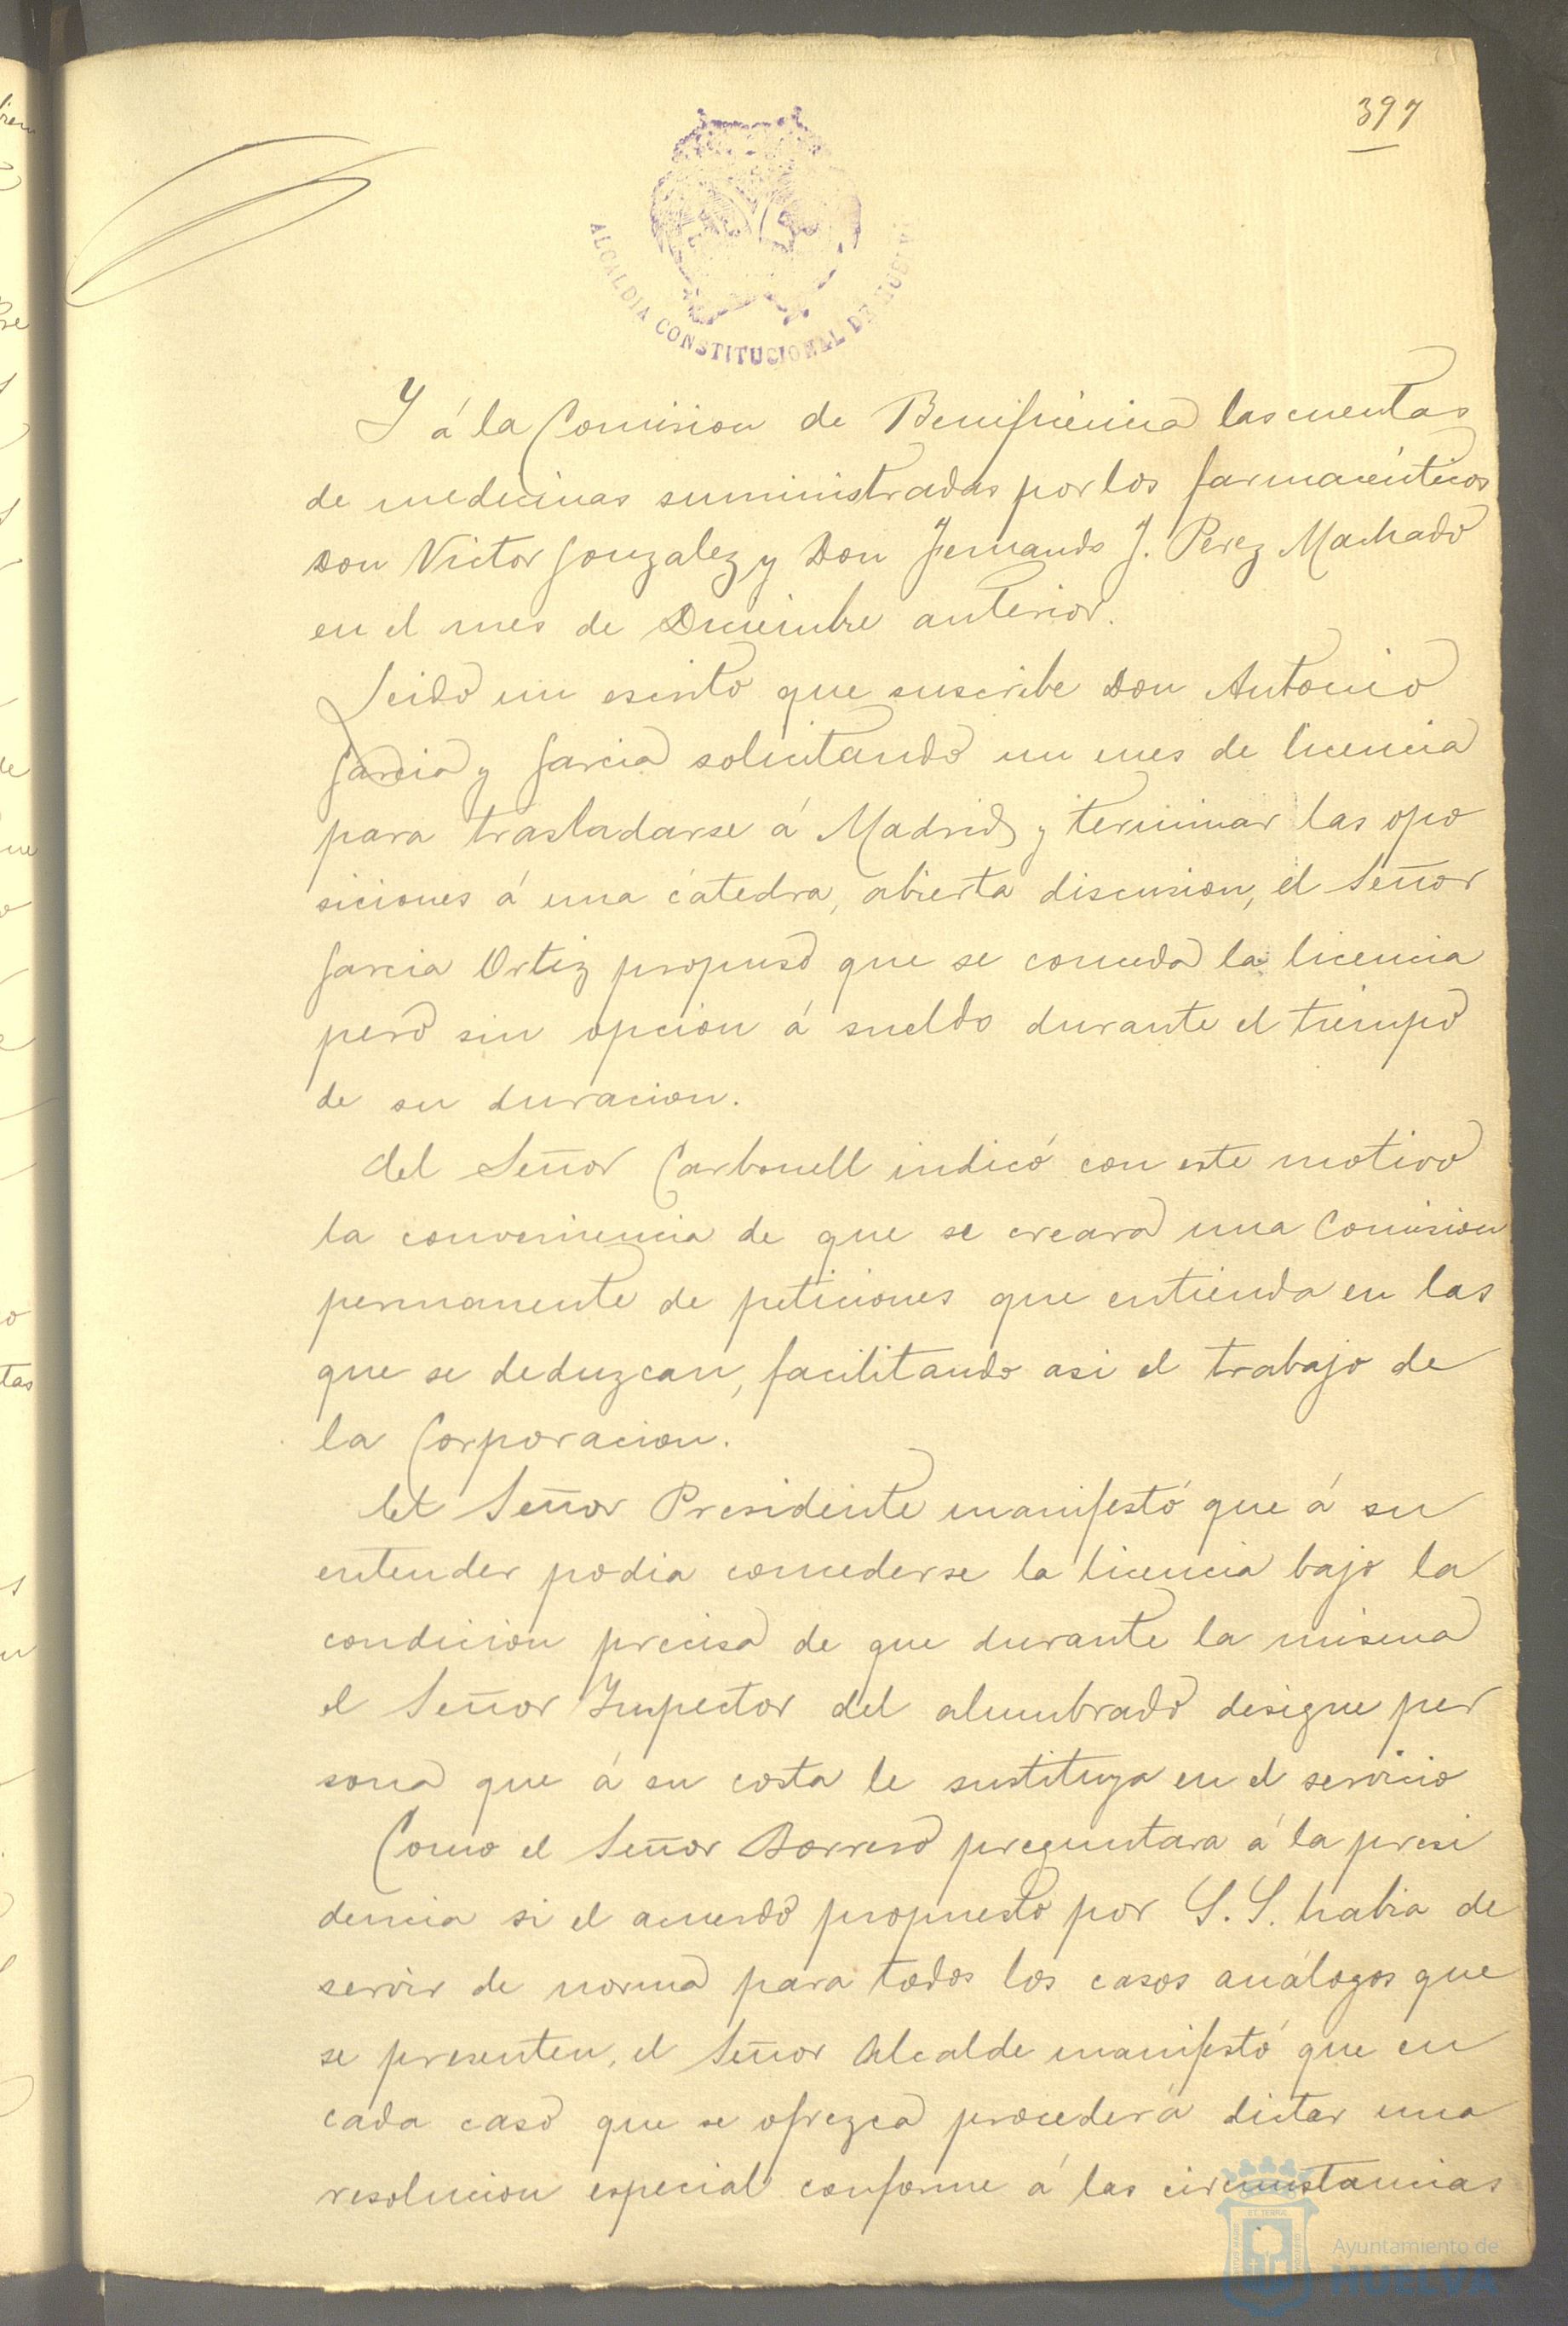 397
ALCALDIA CONSTITUCIONAL DE HUELVA
Y á la Comision de Benificéncia las cuentas
de medicinas suministradas por los farmacéuticos
Don Victor Gonzalez y Don Fernando J. Perez Machado
en el mes de Diciembre anterior.
Leido un escrito que suscribe Don Antonio
Garcia y Garcia solicitando un mes de licencia
para trasladarse á Madrid y terminar las opo
siciones á una cátedra, abierta discusion, el Señor
Garcia Ortiz propuso que se conceda la licencia
pero sin opcion á sueldo durante el tiempo
de su duracion.
El Señor Carbonell indicó con este motivo
la conveniencia de que se creara una Comision
permanente de peticiones que entienda en las
que se deduzcan, facilitando asi el trabajo de
la Corporacion.
El Señor Presidente manifestó que á su
entender podia concederse la licencia bajo la
condicion precisa de que durante la misma
el Señor Inspector del alumbrado designe per
sona que á su costa le sustituya en el servicio
Como el Señor Borrero preguntara á la presi
dencia si el acuerdo propuesto por S. S. habia de
servir de norma para todos los casos análogos que
se presenten, el Señor Alcalde manifestó que en
cada caso que se ofrezca procederá dictar una
resolucion especial conforme á las circunstancias
Ayuntamiento de
HUELVA